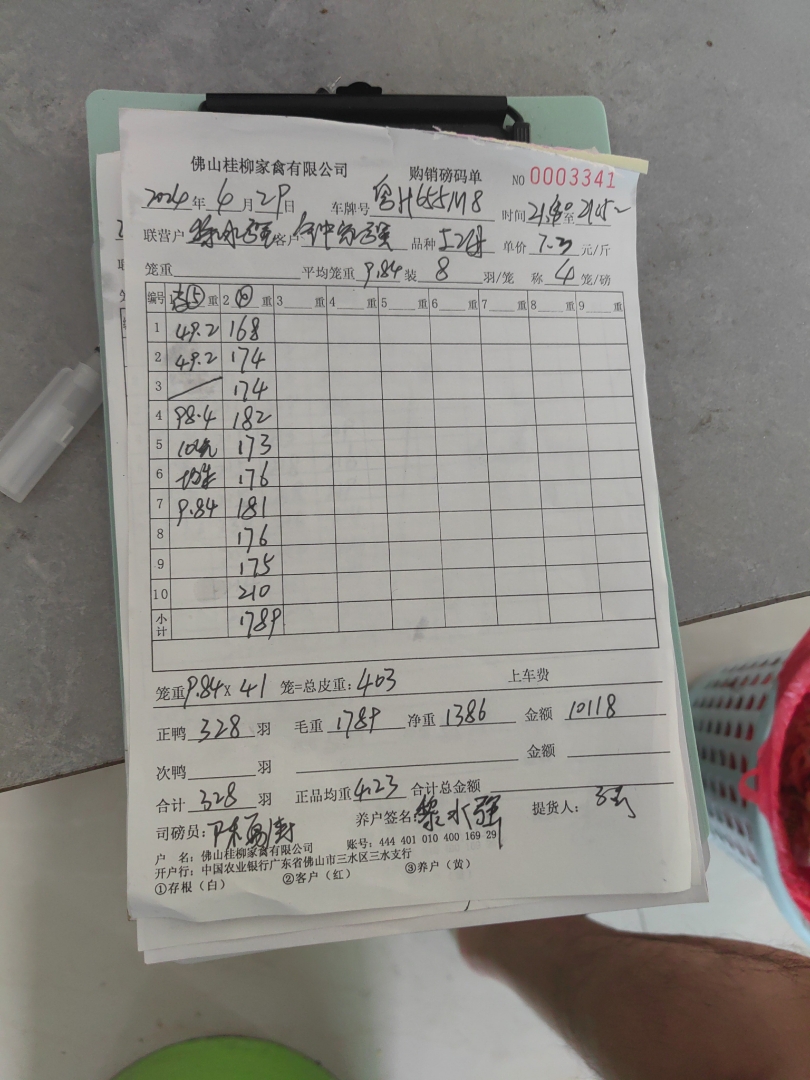 佛山桂柳家禽有限公司 购销磅码单 NO 0003341
2024年 6月 29日 车牌号 粤H655M8 时间 至
联营户 黎水强 客户 品种 单价 7.3 元/斤
笼重 平均笼重 9.84 装 8 羽/笼 称 4 笼/磅
编号 1 ⑤ 重 2 重 3 重 4 重 5 重 6 重 7 重 8 重 9 重
1 49.2 168
2 49.2 174
3 174
4 98.4 182
5 173
6 176
7 9.84 181
8 176
9 175
10 210
小计 1789
笼重 9.84 X 41 笼=总皮重: 403 上车费
正鸭 328 羽 毛重 1789 净重 1386 金额 10118
次鸭 羽 金额
合计 328 羽 正品均重 4.23 合计总金额
司磅员: 养户签名: 黎水强 提货人:
户 名: 佛山桂柳家禽有限公司 账号: 444 401 010 400 169 29
开户行: 中国农业银行广东省佛山市三水区三水支行
①存根（白） ②客户（红） ③养户（黄）